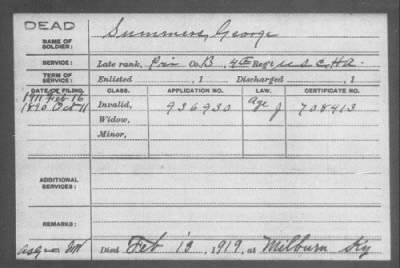 DEAD
NAME OF SOLDIER: Summers, George
SERVICE: Late rank, Pri Co. B, 4th Regt U S C. H A.
TERM OF SERVICE: Enlisted , 1 Discharged , 1
DATE OF FILING. CLASS. APPLICATION NO. LAW. CERTIFICATE NO.
1911 Feb 16
1890 Oct 11 Invalid, 936930 Age J 708413
Widow,
Minor,
ADDITIONAL SERVICES:
REMARKS:
Died Feb 13, 1919, at Milburn Ky